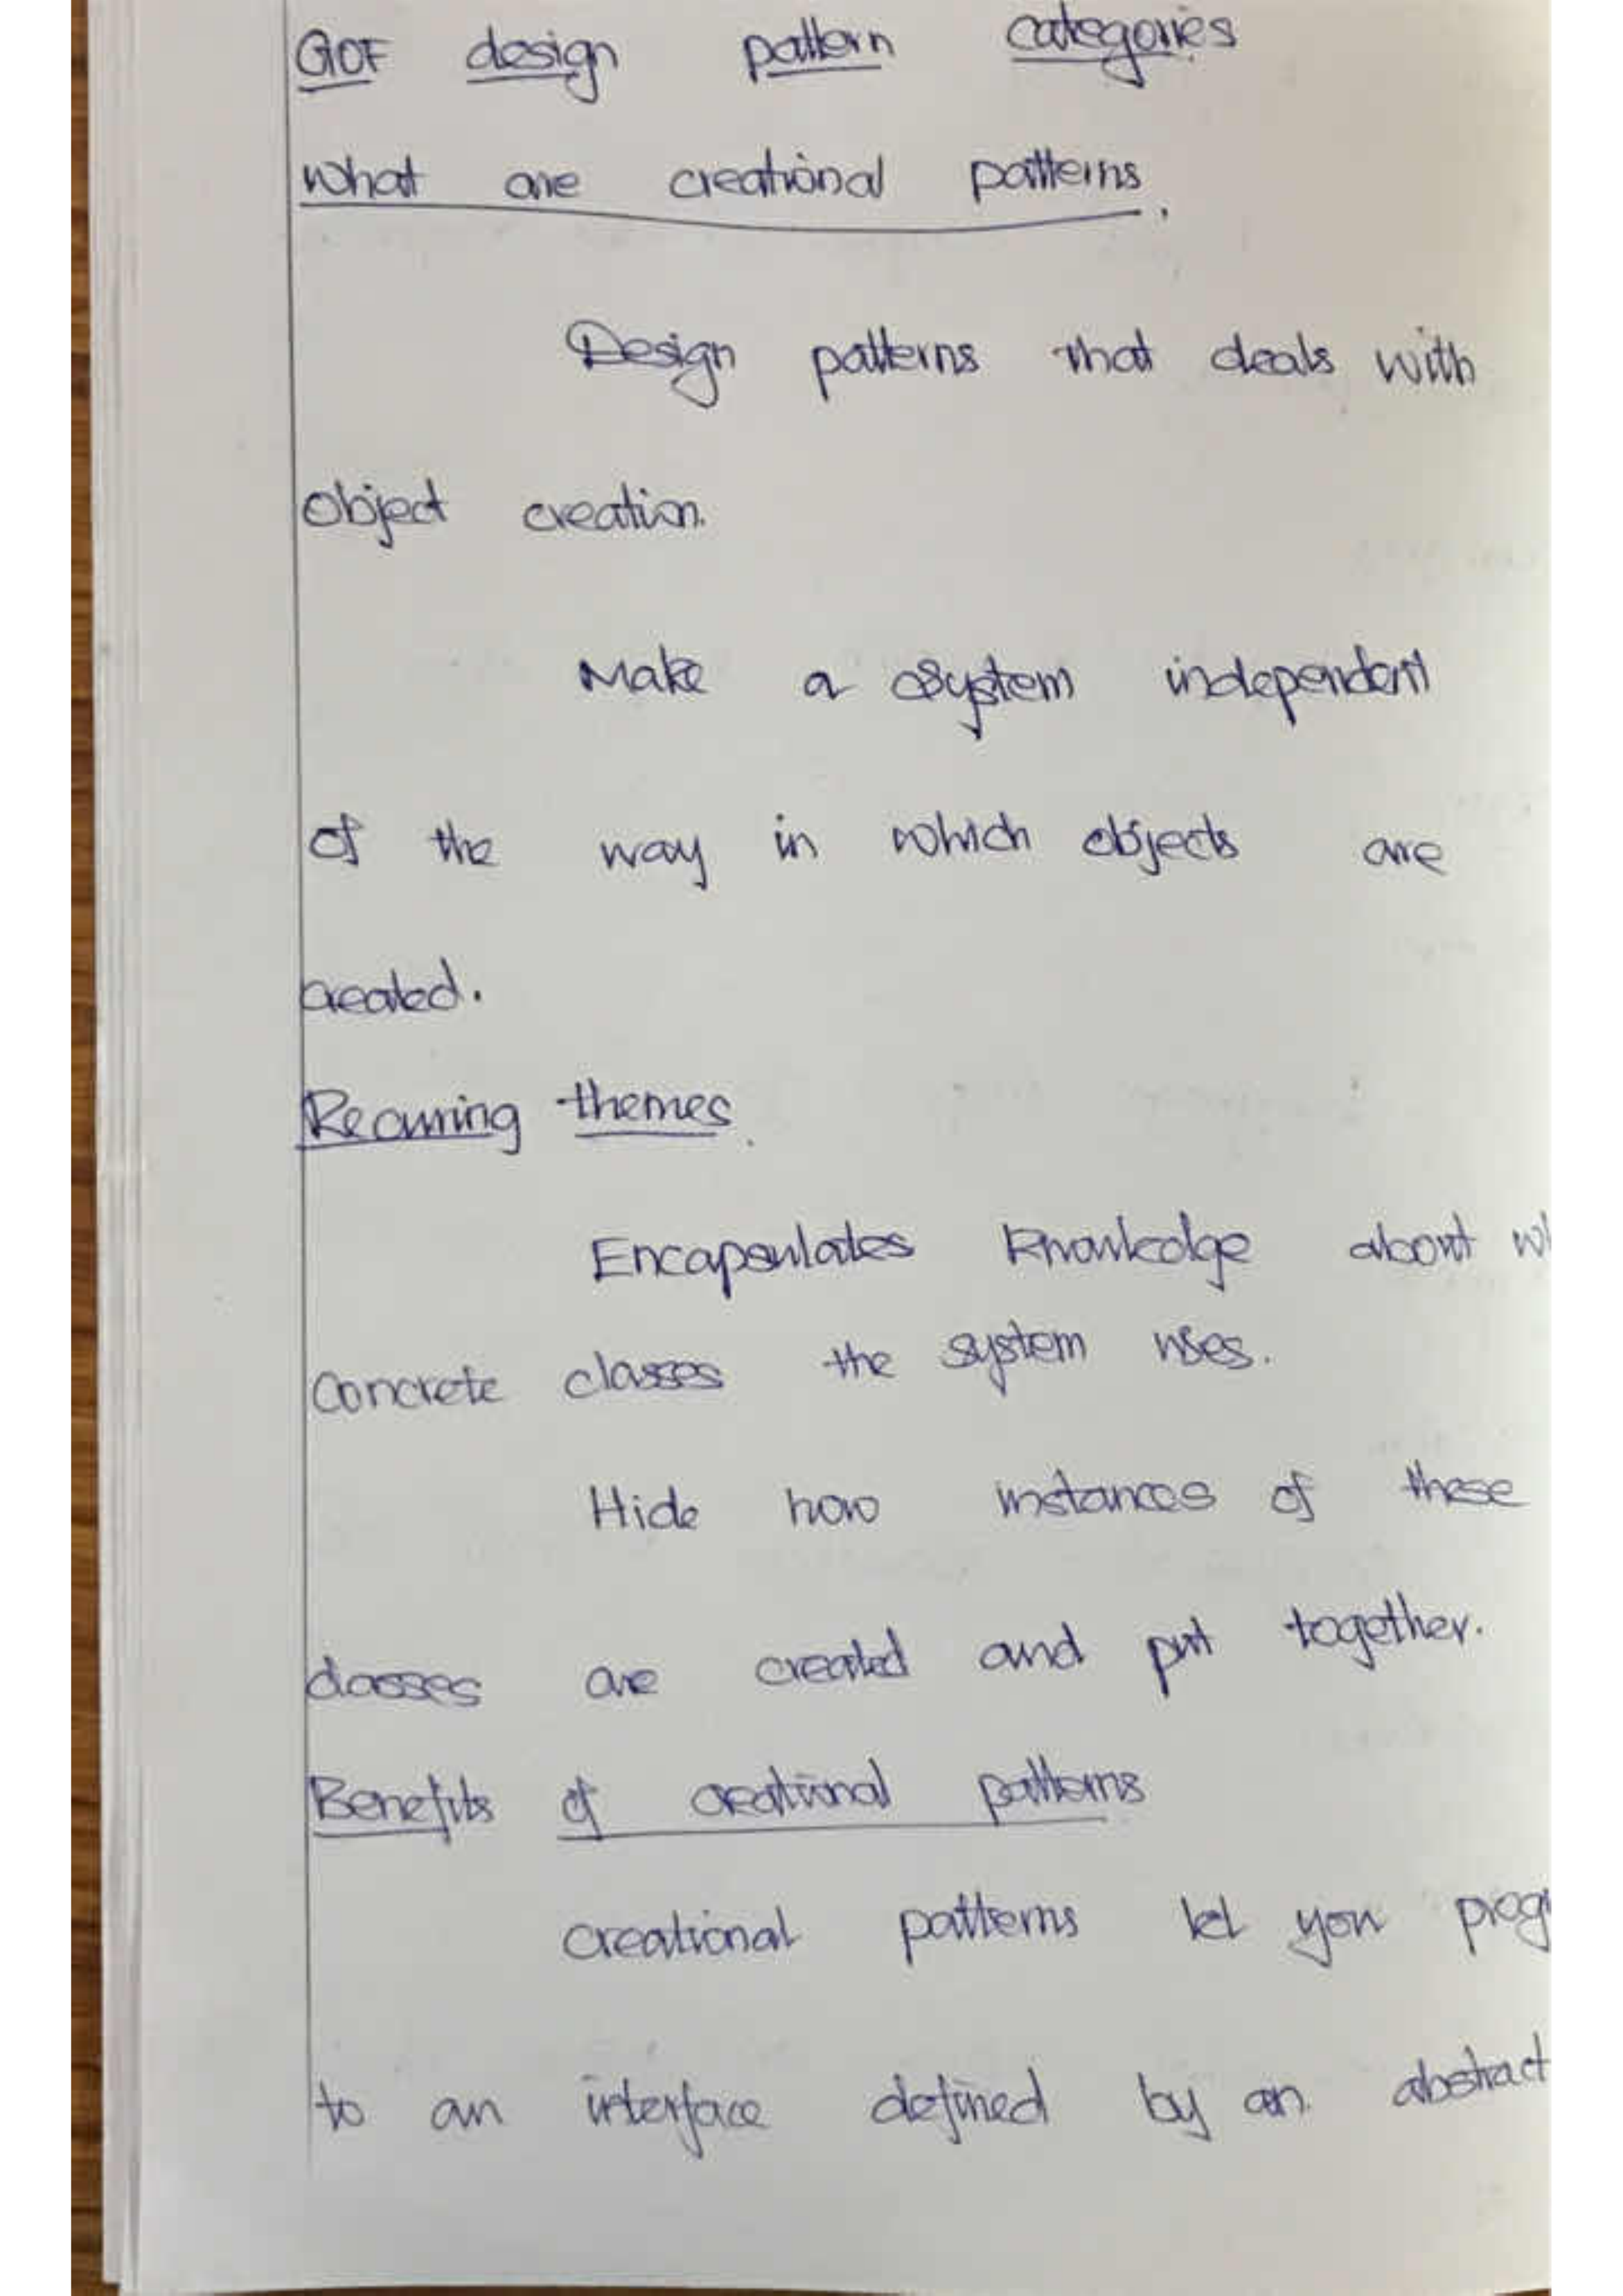 GOF design pattern categories
what are creational patterns.
Design patterns that deals with
Object creation.
Make a system independent
of the way in which objects are
created.
Recurring themes.
Encapsulates knowledge about wh
Concrete classes the system uses.
Hide how instances of these
classes are created and put together.
Benefits of creational patterns
creational patterns let you prog
to an interface defined by an abstract